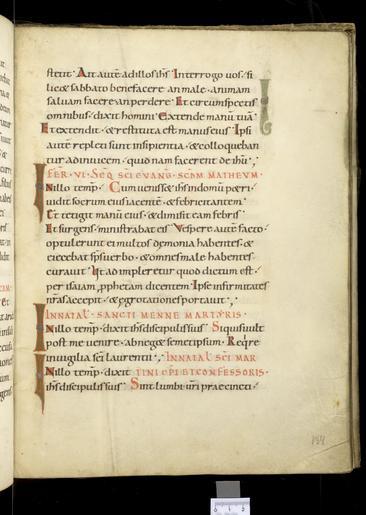 stetit· Ait autē adillos ihs̄ Interrogo uos· si
licet sabbato benefacere an male· animam
saluam facere an perdere Et circumspectis
omnibus· dixit homini Extende manū tuā
Et extendit· & restituta est manus eius Ipsi
autē repleti sunt insipientia· & colloqueban
tur adinuicem· quid nam facerent de ihū·,
FER· VI· SEQ̄ SC̄I EVANḠ· SCD̄M MATHEVM·
Inillo temp̄· Cum uenisset ihs̄ indomū petri·
uidit socrum eius iacentē· & febricitantem
Et tetigit manū eius· & dimisit eam febris
Et surgens· ministrabat eis Vespere autē facto·
optulerunt ei multos demonia habentes· &
eiciebat sp̄s uerbo· & omnes male habentes·
curauit Ut adimpleretur quod dictum est·
per isaiam p̄phetam dicentem· Ipse infirmitates
nr̄as accepit· & ęgrotationes portauit·,
INNATAL̄· SANCTI MENNE MARTYRIS·
Inillo temp̄· dixit ihs̄ discipulis suis Siquis uult
post me uenire· abneget semetipsum· Reqr̄e
inuigilia sc̄i laurentii·, INNATAL̄ SC̄I MAR
Inillo temp̄· dixit TINI EP̄I ET CONFESSORIS·
ihs̄ discipulis suis Sint lumbi ur̄i praecincti·
184